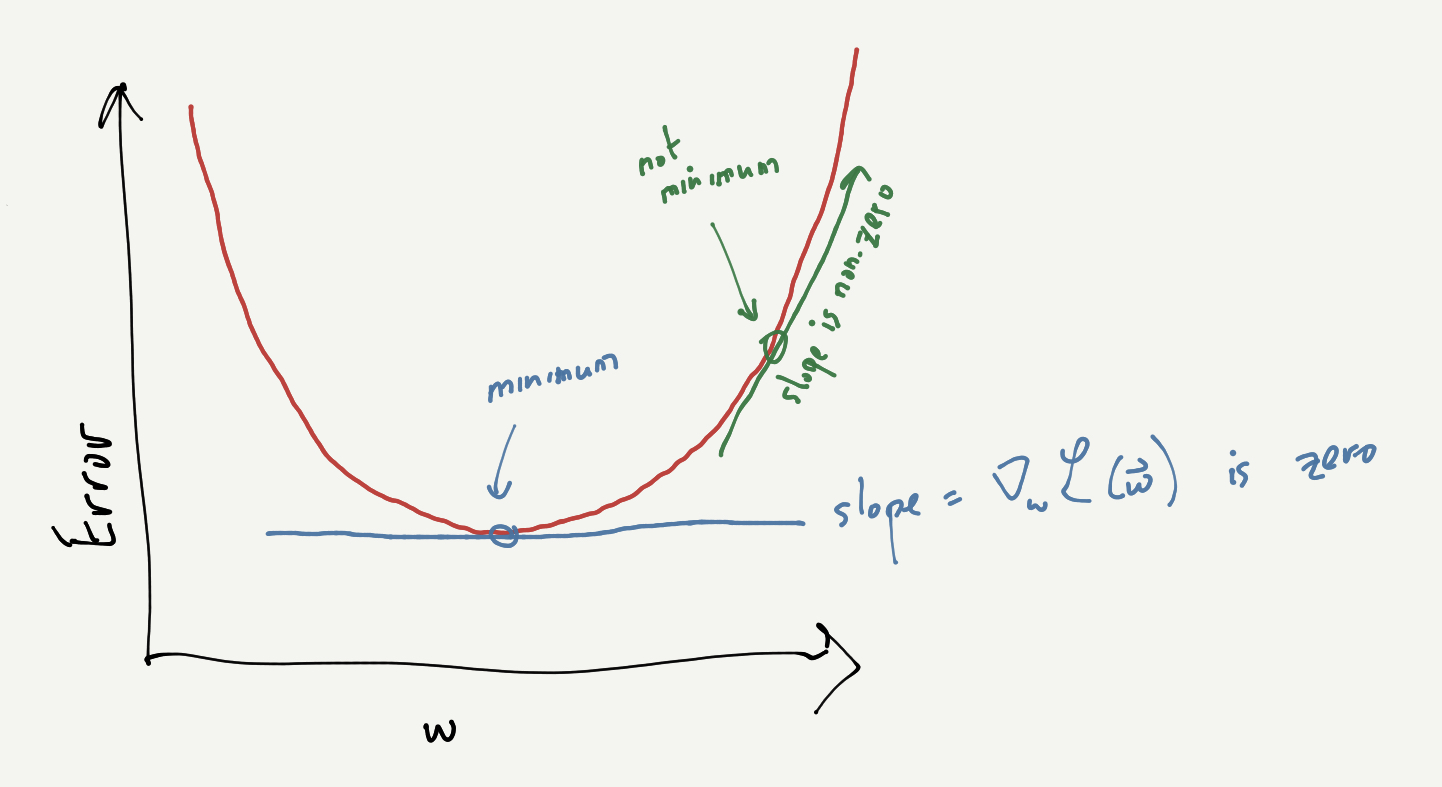 not
minimum
slope is non-zero
minimum
slope = ∇w ℒ(w⃗) is zero
Error
w